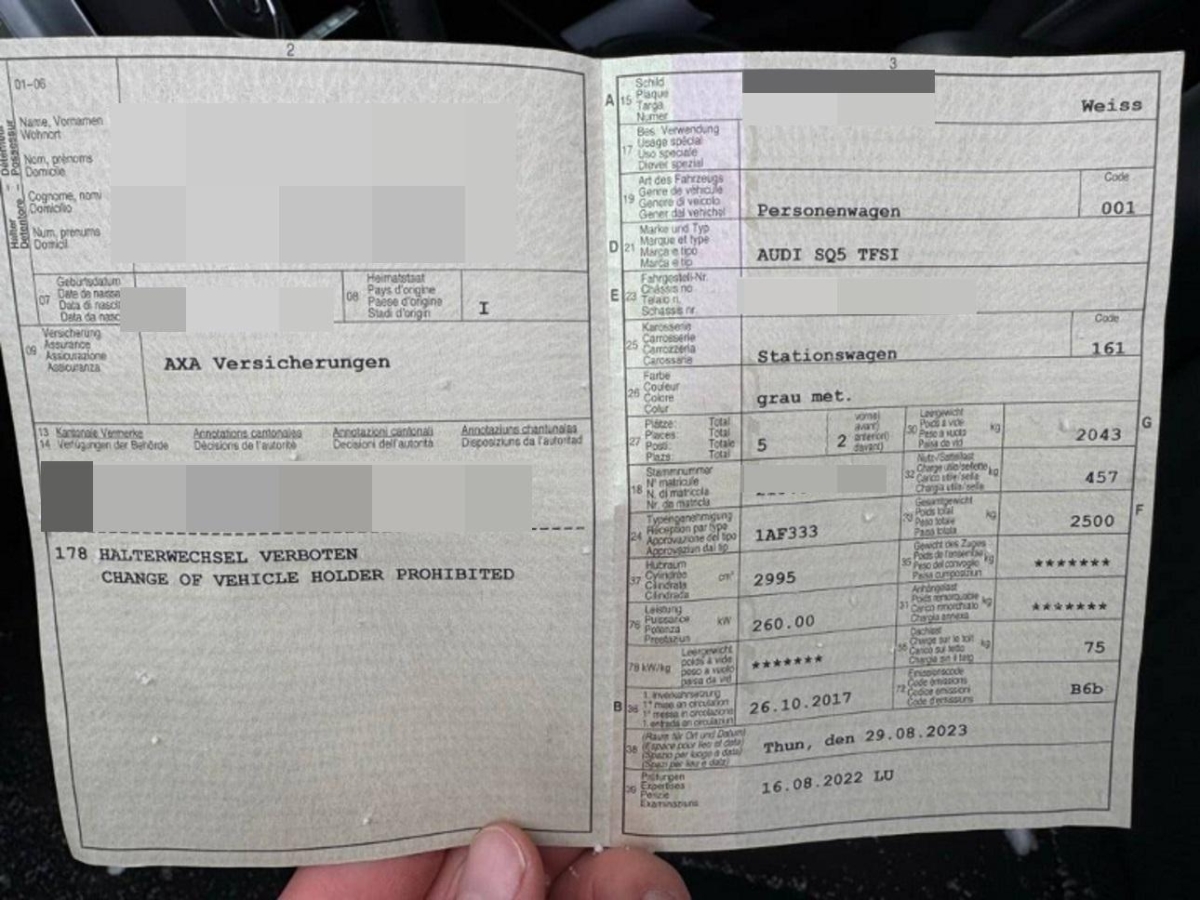 2
01-06
Halter - Détenteur
Detentore - Possessur
Name, Vornamen
Wohnort
Nom, prénoms
Domicile
Cognome, nomi
Domicilio
Num, prenums
Domicil
07
Geburtsdatum
Date de naissa
Data di nascit
Data da nasc
08
Heimatstaat
Pays d'origine
Paese d'origine
Stadi d'origin
I
09
Versicherung
Assurance
Assicurazione
Assicuranza
AXA Versicherungen
13 Kantonale Vermerke Annotations cantonales Annotazioni cantonali Annotaziuns chantunalas
14 Verfügungen der Behörde Décisions de l'autorité Decisioni dell'autorità Disposiziuns da l'autoritad
178 HALTERWECHSEL VERBOTEN
CHANGE OF VEHICLE HOLDER PROHIBITED
3
A 15
Schild
Plaque
Targa
Numer
Weiss
17
Bes. Verwendung
Usage spécial
Uso speciale
Diever spezial
19
Art des Fahrzeugs
Genre de véhicule
Genere di veicolo
Gener dal vehichel
Personenwagen
Code
001
D 21
Marke und Typ
Marque et type
Marca e tipo
Marca e tip
AUDI SQ5 TFSI
E 23
Fahrgestell-Nr.
Châssis no
Telaio n.
Schassis nr.
25
Karosserie
Carrosserie
Carrozzeria
Carossaria
Stationswagen
Code
161
26
Farbe
Couleur
Colore
Colur
grau met.
27
Plätze: Total
Places: Total
Posti: Totale
Plazs: Total
5
2
vorne)
avant)
anteriori)
davant)
30
Leergewicht
Poids à vide
Peso a vuoto
Paisa da vid
kg
2043
G
18
Stammnummer
N° matricule
N. di matricola
Nr. da matricla
32
Nutz-/Sattellast
Charge utile/sellette
Carico utile/sella
Chargia utila/sella
kg
457
24
Typengenehmigung
Réception par type
Approvazione del tipo
Approvaziun dal tip
1AF333
33
Gesamtgewicht
Poids total
Peso totale
Paisa totala
kg
2500
F
37
Hubraum
Cylindrée
Cilindrata
Cilindrada
cm³
2995
35
Gewicht des Zuges
Poids de l'ensemble
Peso del convoglio
Paisa cumposiziun
kg
*******
76
Leistung
Puissance
Potenza
Prestaziun
kW
260.00
31
Anhängelast
Poids remorquable
Carico rimorchiato
Chargia annexa
kg
*******
78 kW/kg
Leergewicht
poids à vide
peso a vuoto
paisa da vid
*******
55
Dachlast
Charge sur le toit
Carico sul tetto
Chargia sin il tetg
kg
75
B 36
1. Inverkehrsetzung
1re mise en circulation
1a messa in circolazione
1. entrada en circulaziun
26.10.2017
72
Emissionscode
Code émissions
Codice emissioni
Code d'emissiuns
B6b
38
(Raum für Ort und Datum)
(Espace pour lieu et date)
(Spazio per luogo e data)
(Spazi per lieu e data)
Thun, den 29.08.2023
39
Prüfungen
Expertises
Perizie
Examinaziuns
16.08.2022 LU